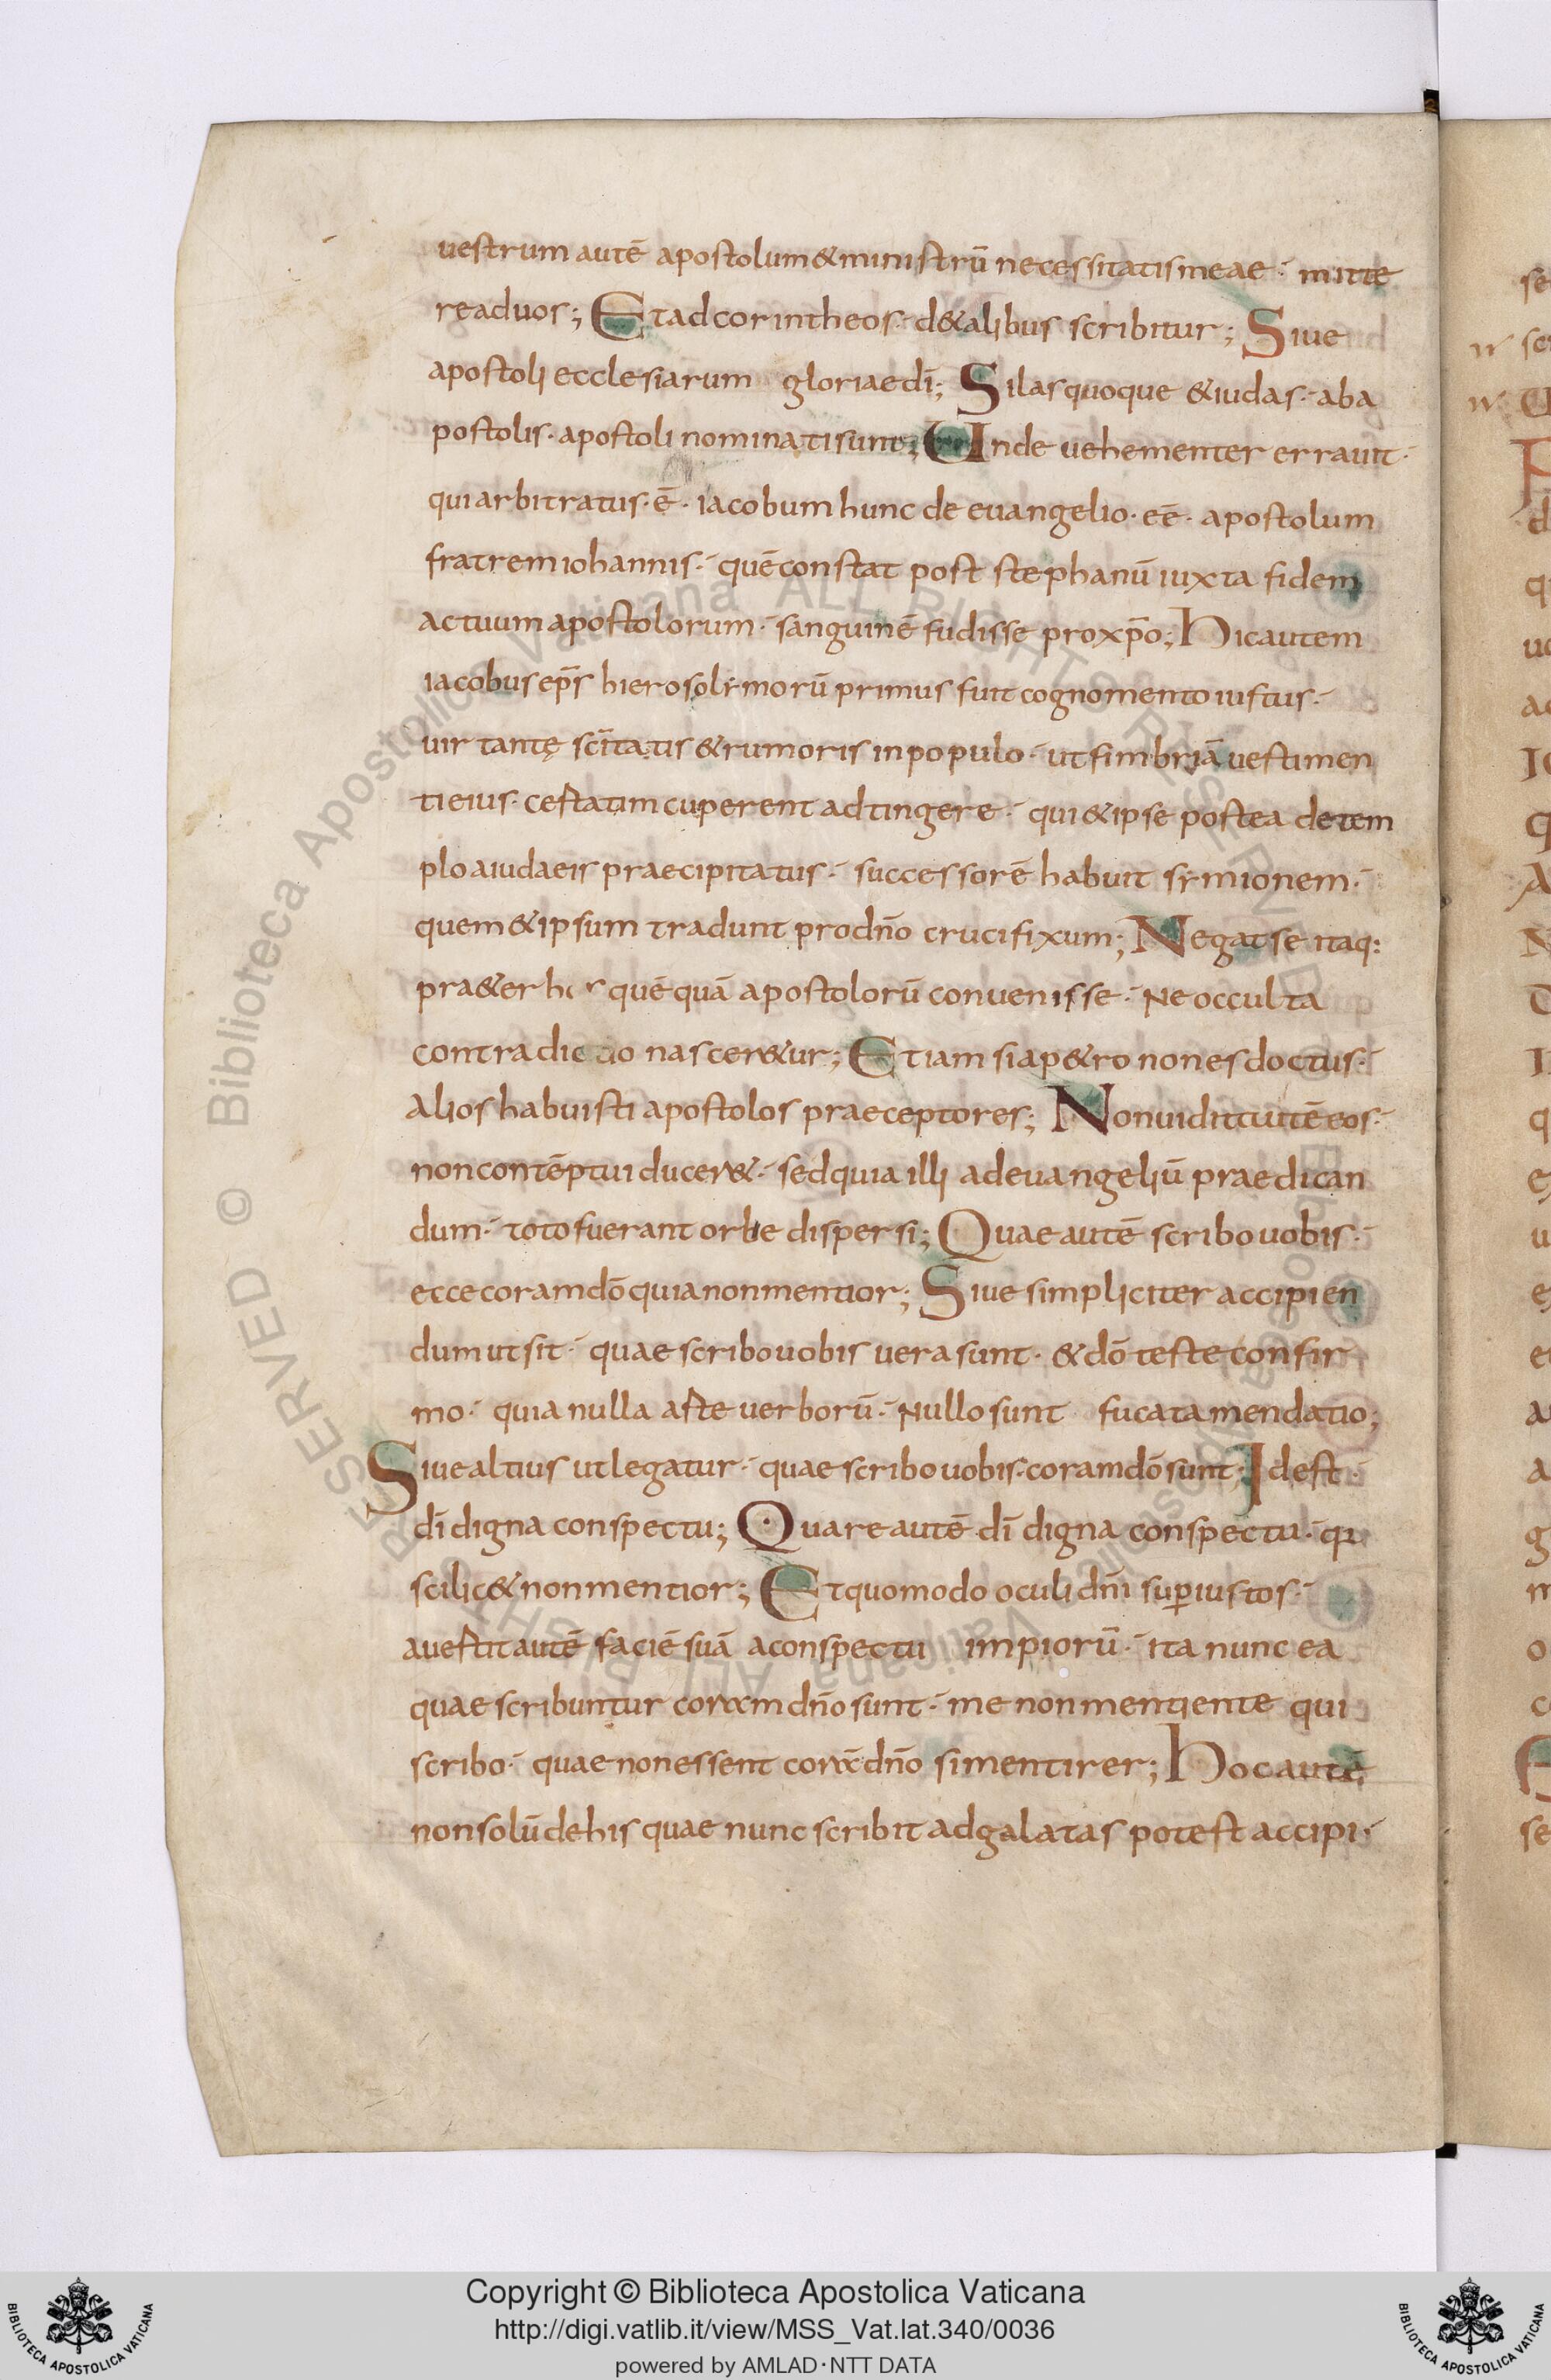 uestrum autē apostolum & ministrū necessitatis meae · mitte
re ad uos; Et ad corintheos · de &alibus scribitur; Siue
apostoli ecclesiarum gloriae dī; Silas quoque & iudas · ab a
postolis · apostoli nominati sunt; Unde uehementer errauit ·
qui arbitratus · ē · iacobum hunc de euangelio · eē · apostolum
fratrem iohannis · quē constat post stephanū iuxta fidem
actuum apostolorum · sanguinē fudisse pro xp̄o; Hic autem
iacobus ep̄s hierosolymorū primus fuit cognomento iustus ·
uir tantę sc̄itatis & rumoris in populo · ut fimbriā uestimen
ti eius · cestatim cuperent adtingere · qui & ipse postea de tem
plo a iudaeis praecipitatus · successorē habuit symionem ·
quem & ipsum tradunt pro dn̄o crucifixum; Negat se itaq:
pra&er quēquā apostolorū conuenisse · Ne occulta
contradictio nascer&ur; Etiam si a p&ro non es doctus ·
Alios habuisti apostolos praeceptores; Non uidit autē eos ·
non contēptui ducer& · sed quia illi ad euangeliū praedican
dum · toto fuerant orbe dispersi; Quae autē scribo uobis ·
ecce coram dō quia non mentior; Siue simpliciter accipien
dum ut sit · quae scribo uobis uera sunt · & dō teste confir
mo · quia nulla aste uerborū · Nullo sunt fucata mendatio;
Siue altius ut legatur · quae scribo uobis · coram dō sunt · Id est ·
dī digna conspectu; Quare autē dī digna conspectu · qa
scilic& non mentior; Et quomodo oculi dn̄i sup iustos ·
auestit autē faciē suā a conspectu impiorū · ita nunc ea
quae scribuntur coram dn̄o sunt · me non mentiente qui
scribo · quae non essent corā dn̄o si mentirer; Hoc autē
non solū de his quae nunc scribit ad galatas potest accipi ·
Copyright © Biblioteca Apostolica Vaticana
http://digi.vatlib.it/view/MSS_Vat.lat.340/0036
powered by AMLAD·NTT DATA